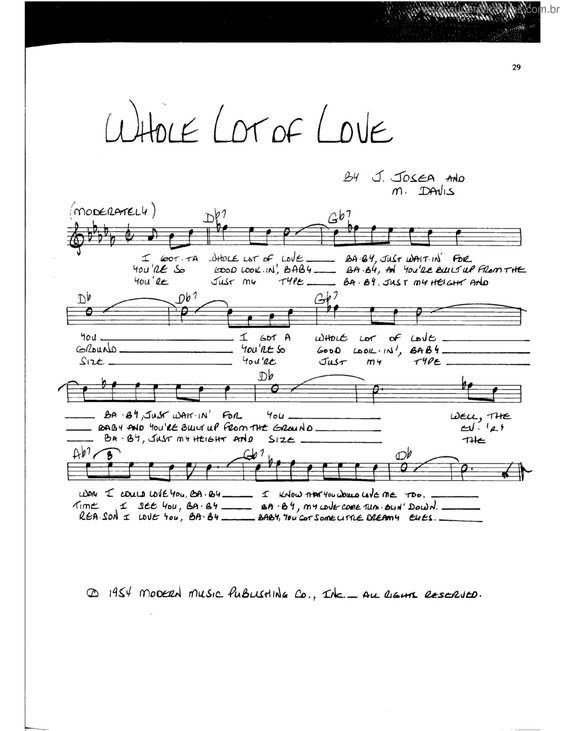 .com.br
29
WHOLE LOT OF LOVE
BY J. JOSEA AND
M. DAVIS
(MODERATELY)
Db7 Gb7
I GOT-TA WHOLE LOT OF LOVE BA-BY, JUST WAIT-IN' FOR
YOU'RE SO GOOD LOOK-IN', BABY BA-BY, AN YOU'RE BUILT UP FROM THE
YOU'RE JUST MY TYPE BA-BY. JUST MY HEIGHT AND
Db Db7 Gb7
YOU I GOT A WHOLE LOT OF LOVE
GROUND YOU'RE SO GOOD LOOK-IN', BABY
SIZE YOU'RE JUST MY TYPE
Db
BA-BY, JUST WAIT-IN' FOR YOU WELL, THE
BABY AND YOU'RE BUILT UP FROM THE GROUND EV-'RY
BA-BY, JUST MY HEIGHT AND SIZE THE
Ab7 3 Gb7 Db
WAY I COULD LOVE YOU, BA-BY I KNOW THAT YOU WOULD LOVE ME TOO.
TIME I SEE YOU, BA-BY BA-BY, MY LOVE COME TUM-BLIN' DOWN.
REA-SON I LOVE YOU, BA-BY BABY, YOU GOT SOME LITTLE DREAMY EYES.
© 1954 MODERN MUSIC PUBLISHING CO., INC. — ALL RIGHTS RESERVED.